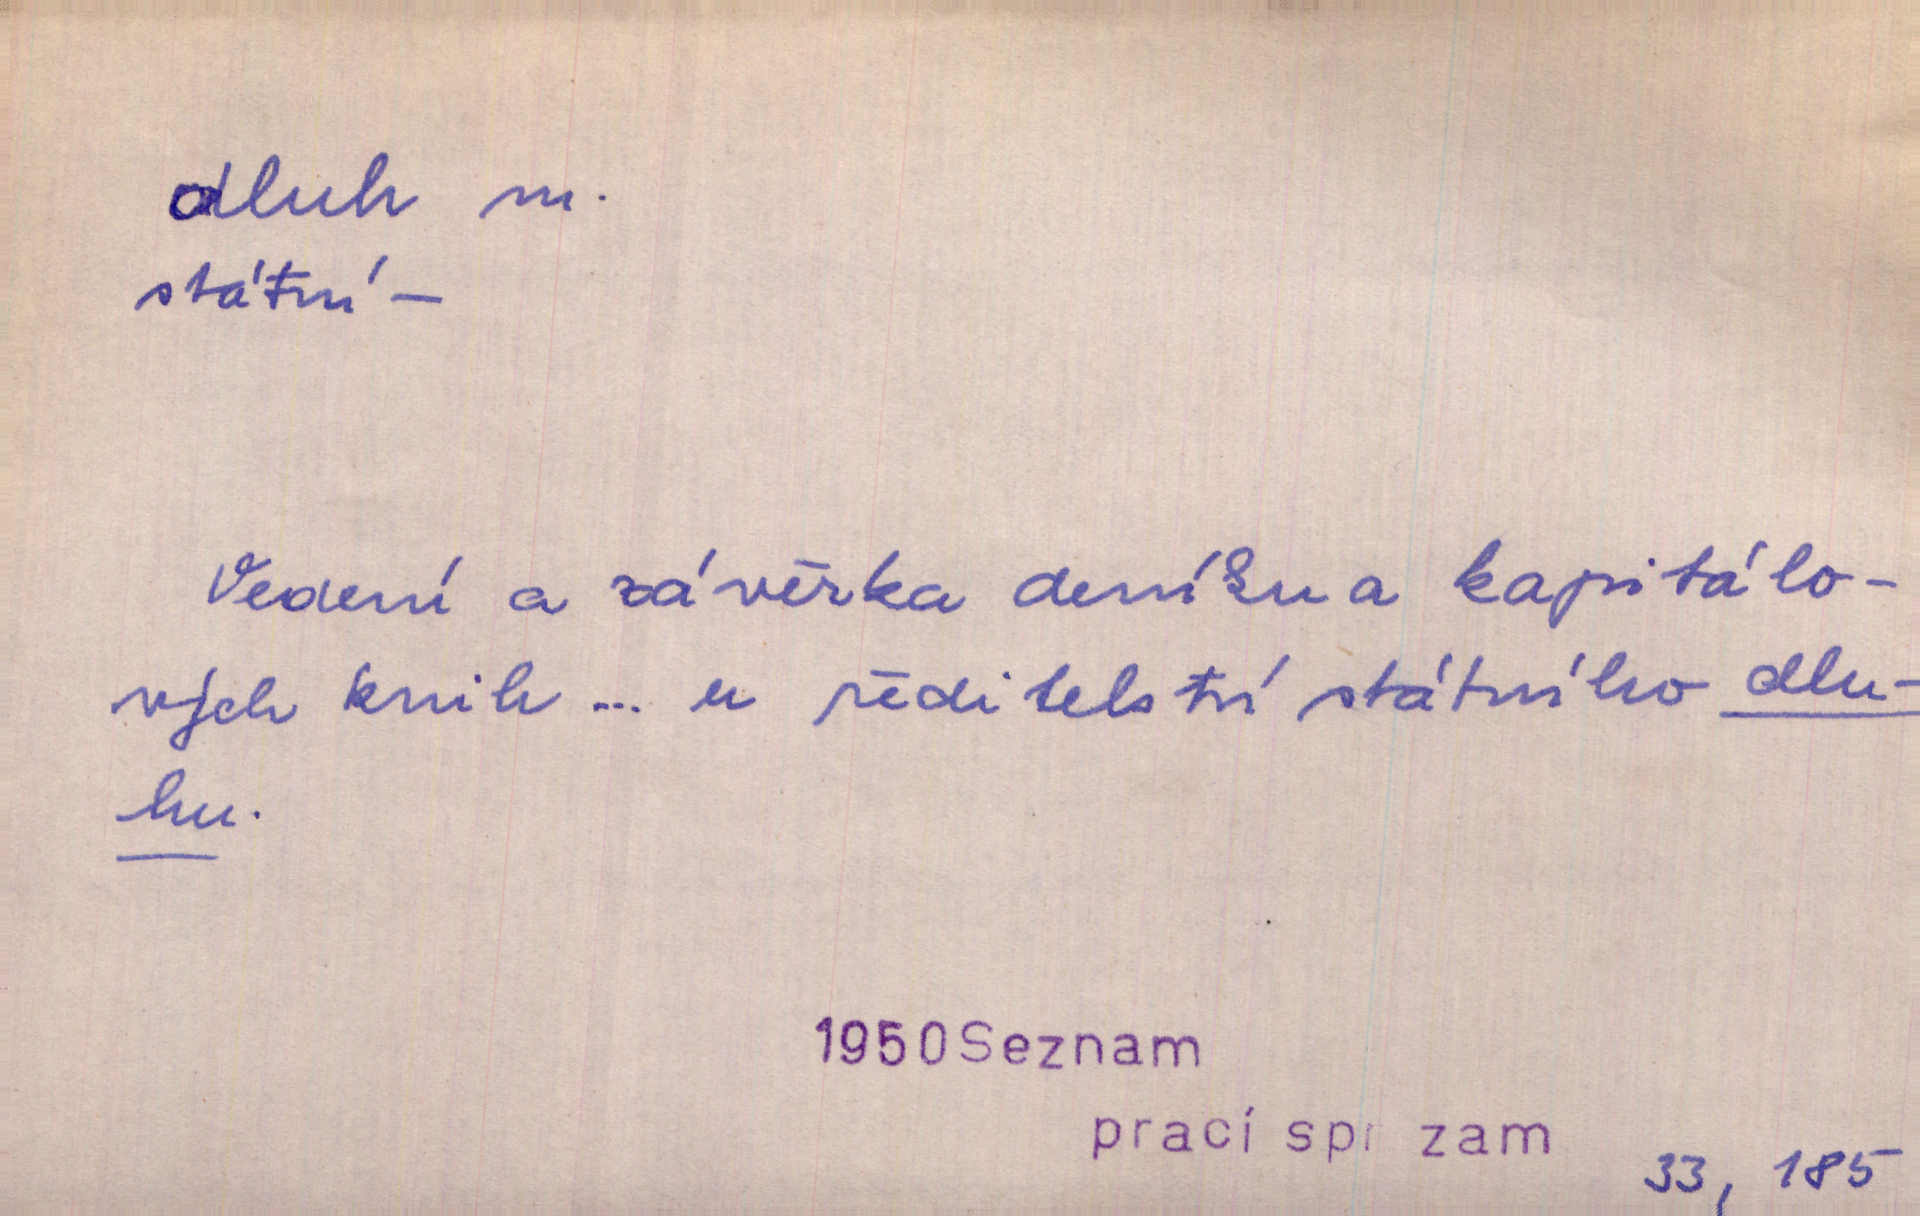 dluh m.
státní –
Vedení a závěrka deníku a kapitálo-
vých knih ... u ředitelství státního dlu-
hu.
1950 Seznam
prací spr zam
33, 185